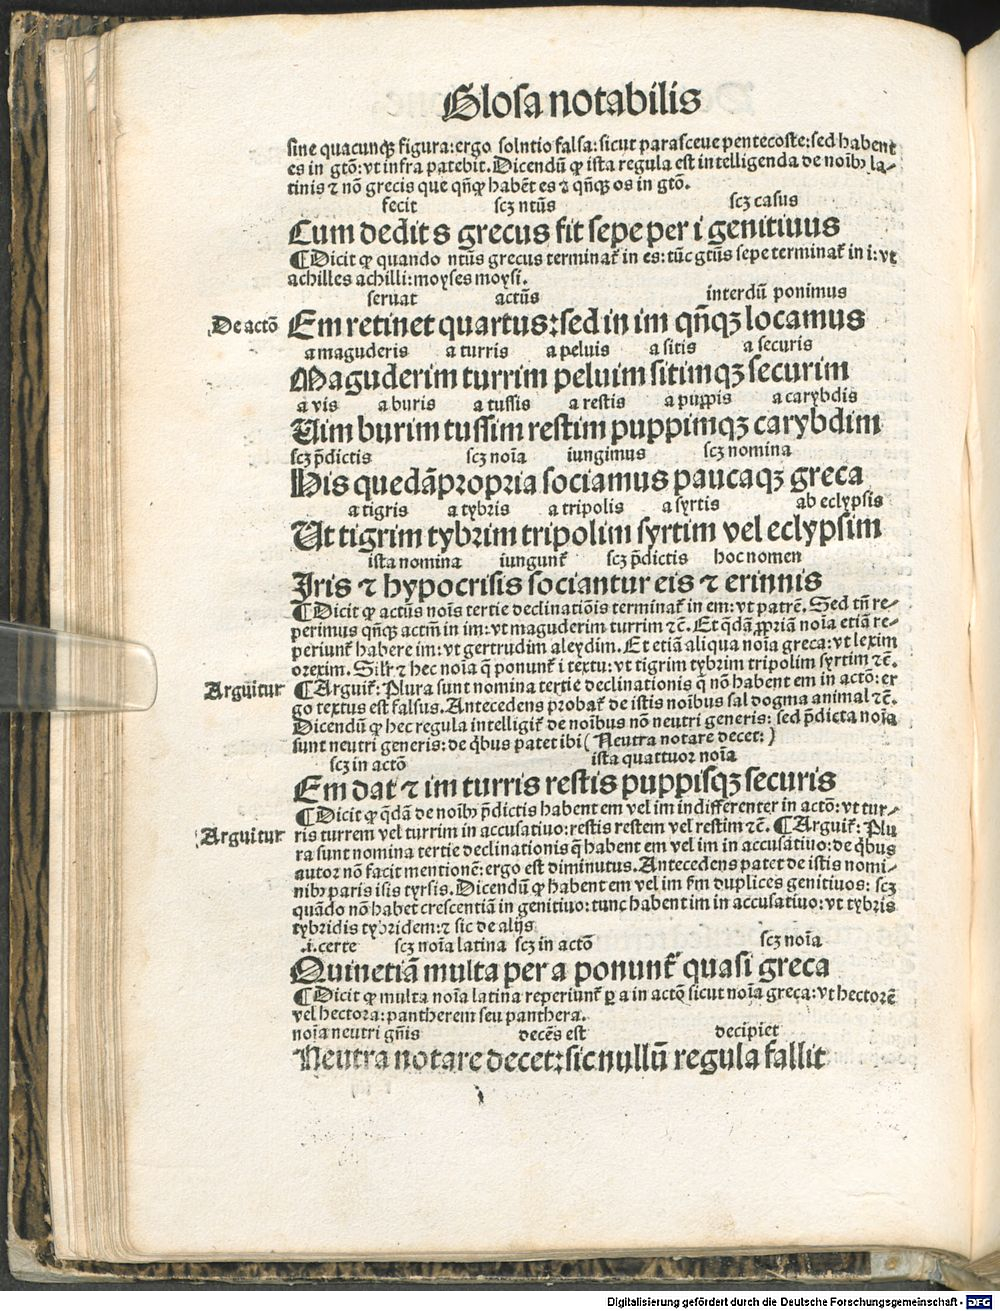 Glosa notabilis
sine quacunqꝫ figura: ergo solntio falsa: sicut parasceue pentecoste: sed habent
es in gtō: vt infra patebit. Dicendū ꝙ ista regula est intelligenda de noībꝫ la⸗
tinis ⁊ nō grecis que qn̄qꝫ habēt es ⁊ qn̄qꝫ os in gtō.
fecit scꝫ ntūs scꝫ casus
Cum dedit s grecus fit sepe per i genitiuus
¶ Dicit ꝙ quando ntūs grecus terminat᷑ in es: tūc gtūs sepe terminat᷑ in i: vt
achilles achilli: moyses moysi.
seruat actūs interdū ponimus
De actō Em retinet quartus: sed in im qn̄qꝫ locamus
a maguderis a turris a peluis a sitis a securis
Maguderim turrim peluim sitimqꝫ securim
a vis a buris a tussis a restis a puppis a carybdis
Uim burim tussim restim puppimqꝫ carybdim
scꝫ p̄dictis scꝫ noīa iungimus scꝫ nomina
His quedā propria sociamus paucaqꝫ greca
a tigris a tybris a tripolis a syrtis ab eclypsis
Ut tigrim tybrim tripolim syrtim vel eclypsim
ista nomina iungunt᷑ scꝫ p̄dictis hoc nomen
Iris ⁊ hypocrisis sociantur eis ⁊ erinnis
¶ Dicit ꝙ actūs noīs tertie declinatiōis terminat᷑ in em: vt patrē. Sed tn̄ re⸗
perimus qn̄qꝫ actm̄ in im: vt maguderim turrim ⁊c̄. Et q̄dā ꝓpriā noīa etiā re⸗
periunt᷑ habere im: vt gertrudim aleydim. Et etiā aliqua noīa greca: vt lexim
orexim. Silr̄ ⁊ hec noīa q̄ ponunt᷑ i textu: vt tigrim tybrim tripolim syrtim ⁊c̄.
Arguitur ¶ Arguit᷑: Plura sunt nomina tertie declinationis q̄ nō habent em in actō: er
go textus est falsus. Antecedens probat᷑ de istis noībus sal dogma animal ⁊c̄.
Dicendū ꝙ hec regula intelligit᷑ de noībus nō neutri generis: sed p̄dicta noīa
sunt neutri generis: de q̇bus patet ibi (Neutra notare decet:)
scꝫ in actō ista quattuor noīa
Em dat ⁊ im turris restis puppisqꝫ securis
¶ Dicit ꝙ q̄dā de noībꝫ p̄dictis habent em vel im indifferenter in actō: vt tur⸗
Arguitur ris turrem vel turrim in accusatiuo: restis restem vel restim ⁊c̄. ¶ Arguit᷑: Plu
ra sunt nomina tertie declinationis q̄ habent em vel im in accusatiuo: de q̇bus
autor nō facit mentionē: ergo est diminutus. Antecedens patet de istis nomi⸗
nibꝫ paris isis tyrsis. Dicendū ꝙ habent em vel im fm̄ duplices genitiuos: scꝫ
quādo nō habet crescentiā in genitiuo: tunc habent im in accusatiuo: vt tybris
tybridis tybridem: ⁊ sic de alijs
.i. certe scꝫ noīa latina scꝫ in actō scꝫ noīa
Quinetiā multa per a ponunt᷑ quasi greca
¶ Dicit ꝙ multa noīa latina reperiunt᷑ ꝑ a in actō sicut noīa greca: vt hectorē
vel hectora: pantherem seu panthera.
noīa neutri gn̄is decēs est decipiet
Neutra notare decet: sic nullū regula fallit
Digitalisierung gefördert durch die Deutsche Forschungsgemeinschaft - DFG